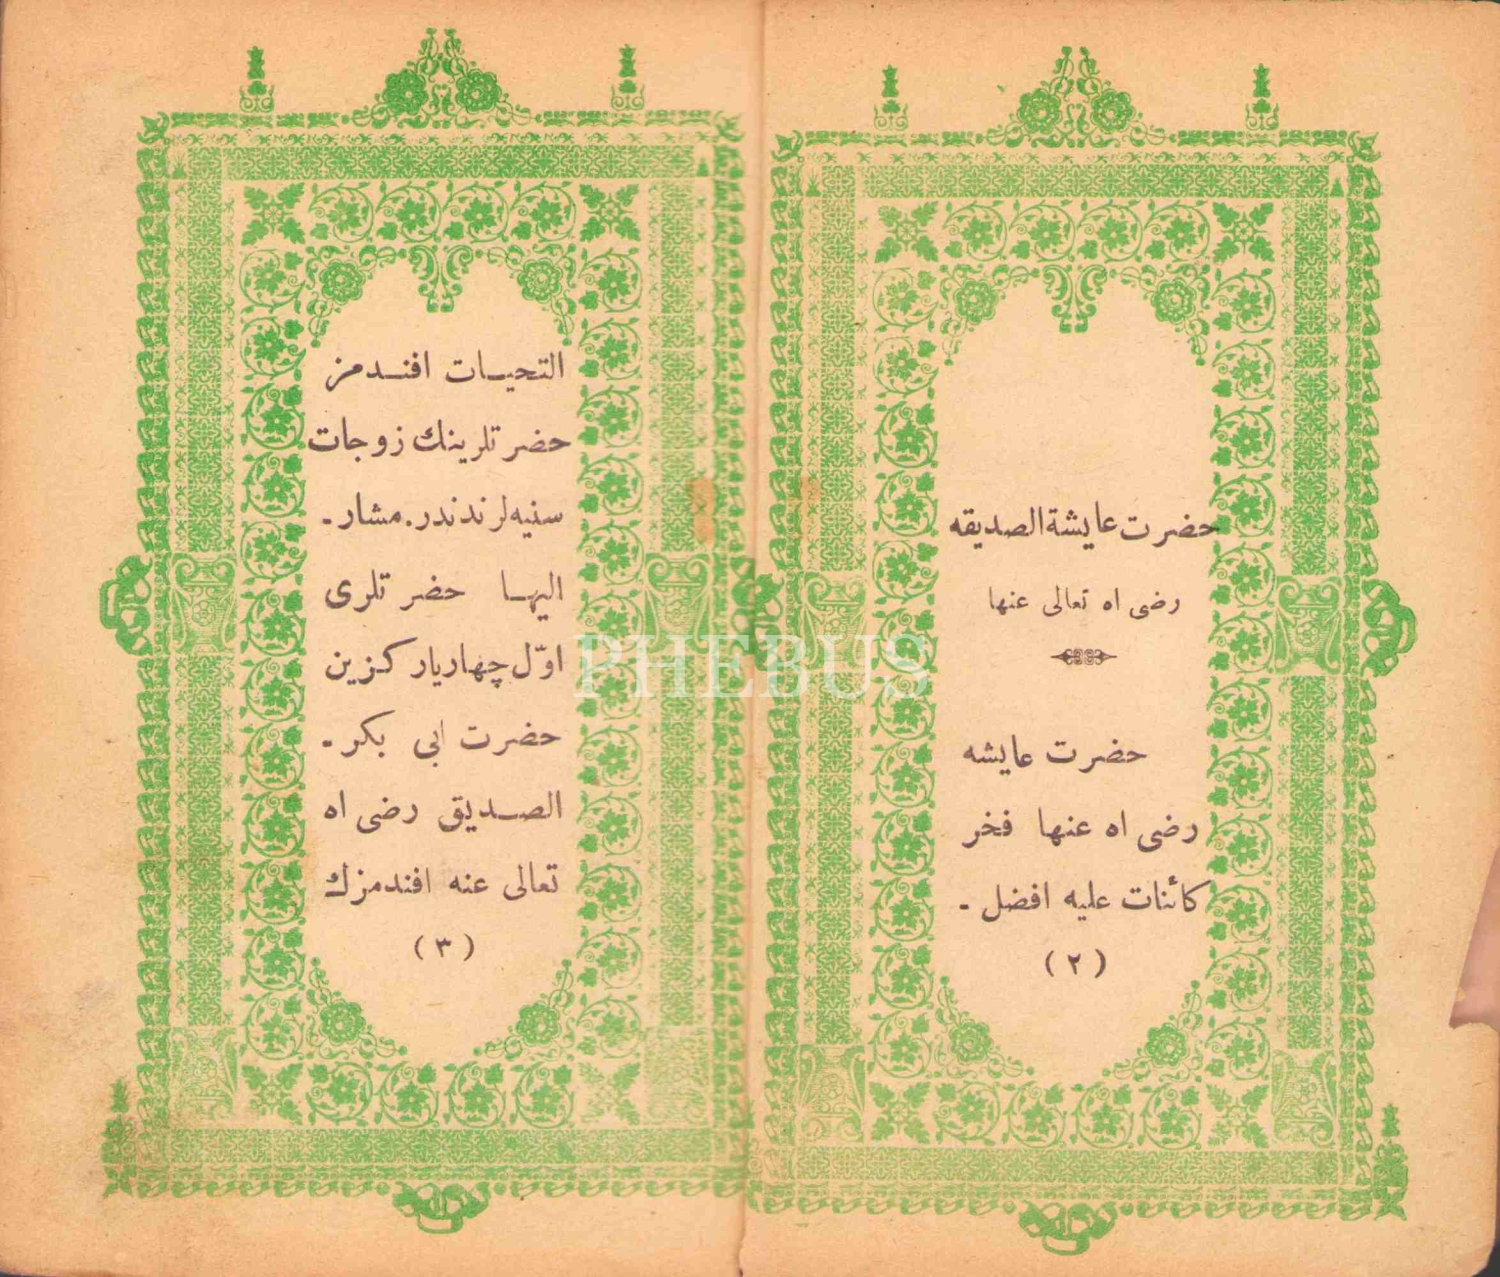 حضرت عایشة الصدیقه
رضی اه تعالی عنها
حضرت عایشه
رضی اه عنها فخر
کائنات علیه افضل -
(٢)
التحیات افندمز
حضرتلرینك زوجات
سنیه لرندندر. مشار -
الیها حضرتلری
اوّل چهاریار کزین
حضرت ابی بکر -
الصدیق رضی اه
تعالی عنه افندمزك
(٣)
PHEBUS